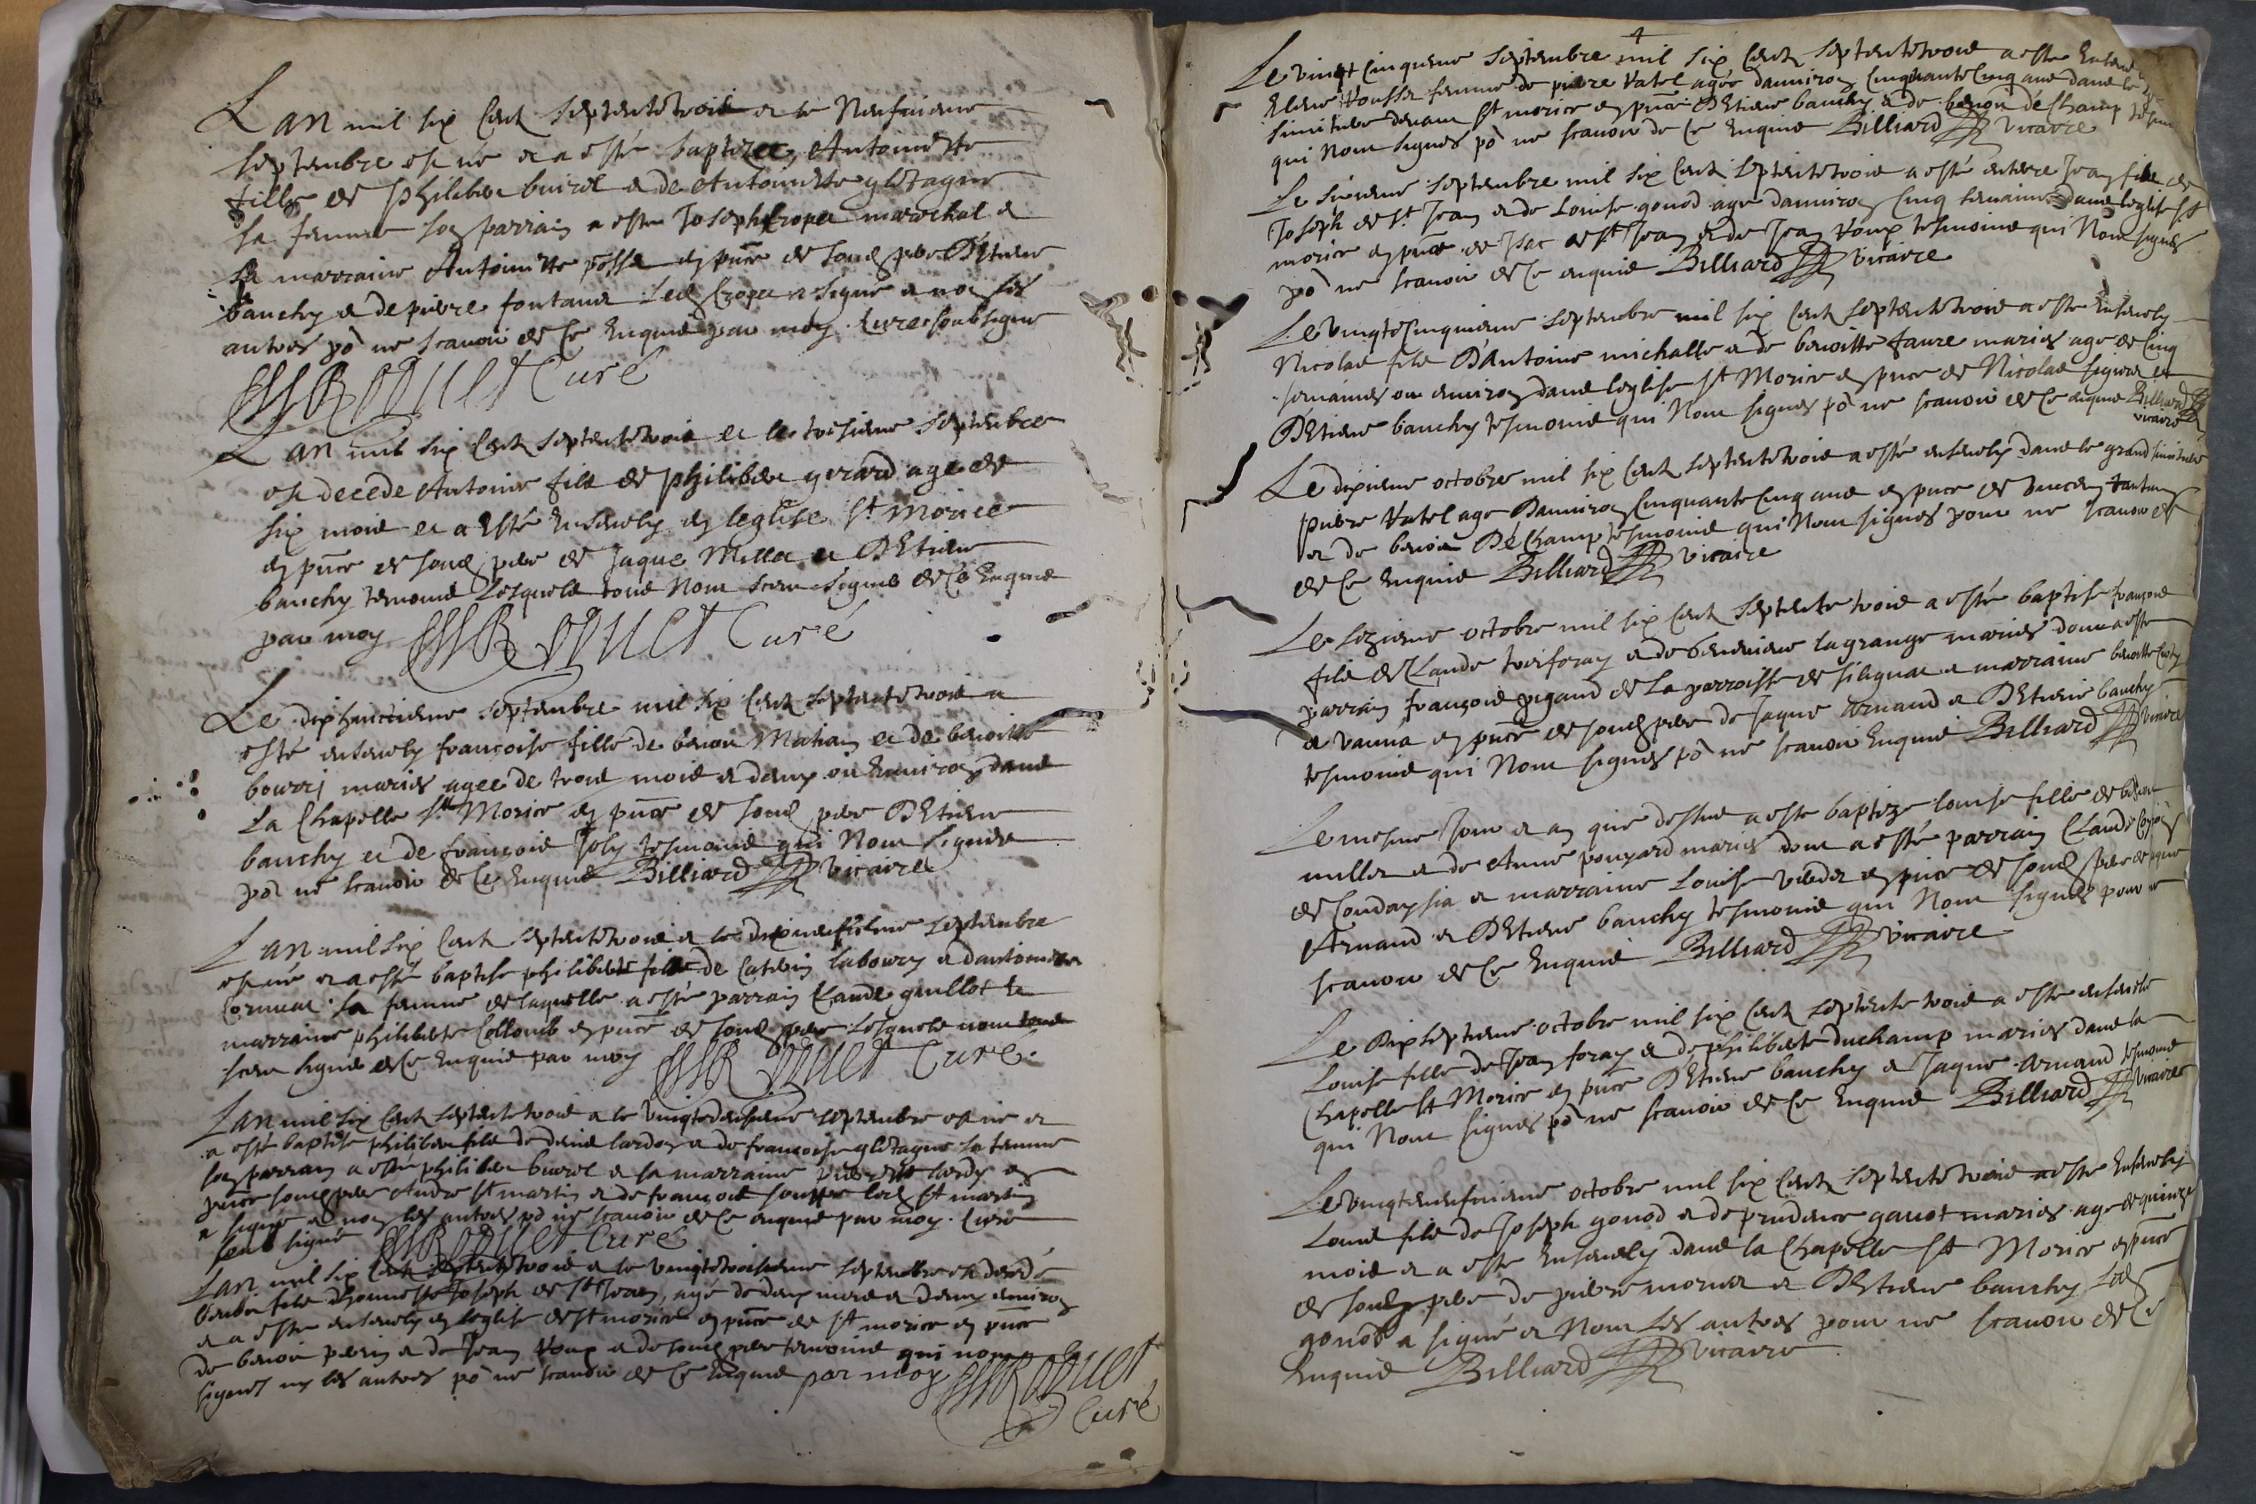 Lan mil six Cent septente trois et le Neufvieme
septembre est né et a esté baptizee Antoinette
fille de philiber buirel et de Antoinette
sa femme son parrain a este Joseph Croper marechal et
sa marraine Antoinette posse en pnce de soud pere D'Etiene
bauchy et de pierre fontana led Croper a signé et non les
autres po ne scavoir de ce Enquis par moy Curé soubsigne
Curé
Lan mil six Cent septente trois et le troisieme septembre
est decede Antoine fils de philiber gerard age de
six mois et a Esté Ensevely en leglise st Morice
en pnce de soud pere de Jaque Milla et D'Etiene
bauchy temoins Lesquels tous Nont sceu signer de ce Enquis
par moy Curé
Le dixhuictieme septembre mil six Cent septente trois a
esté ensevely francoise fille de benoi Mathan et de benoitte
bourri mariés agee de trois mois et demy ou Environ dans
La Chapelle st Morice en pnce de soud pere D'Etiene
bauchy et de francois Joly tesmoins qui Nont signés
po ne scavoir de Ce Enquis Billiard vicaire
Lan mil six Cent septente trois et le dixneufieme septembre
est né et a esté baptisé philiberte fille de Catherin laboury et dantoinette
Cornuat sa femme de laquelle a esté parrain Claude guillot et
marraine philiberte Collomb en pnce de soud pere lesquels nont tous
sceu signer de Ce Enquis par moy Curé
Lan mil six Cent septente trois et le vingtdeusieme septembre est né et
a esté baptisé philiber fils de denis lardon et de francoise sa femme
son parrain a esté philiber buirel et sa marraine pierrette lardon en
pnce soud pere Andre st martin et de francois led st martin
a signé et non les autres po ne scavoir de ce enquis par moy Curé
soub signé Curé
Lan mil six Cent septente trois et le vingttroisieme septembre est decedé
benoi fils d'honneste Joseph de st Jean, agé de deux mois et demy environ
et a este ensevely en leglise de st morice en pnce de st morice en pnce
de benoi perrin et de Jean Voux et de soud pere temoins qui nont
signés ny les autres po ne scavoir de Ce Enquis par moy
Curé
4
Le vingt Cinquieme septembre mil six Cent septente trois a este Enterré
femme de pierre Vatel agée danviron Cinquante Cinq ans dans le
simitiere devant st morice en pnce D'Etiene bauchy et de benoi dé Champ
qui Nont signes po ne scavoir de Ce Enquis Billiard vicaire
Le septembre mil six Cent septente trois a esté enterré Jean fils de
Joseph de st Jean et de Louise gonod age danviron Cinq semaines dans leglise st
morice en pnce de Isac de st Jean et de Jean Voux tesmoins qui Nont signés
po ne scavoir de Ce enquis Billiard vicaire
Le vingtCinquieme septembre mil six Cent septente trois a este Ensevely
Nicolas fils D'Antoine michalle et de benoitte faure mariés age de Cinq
semaines ou environ dans leglise st Morice en pnce de Nicolas et
D'Etiene bauchy tesmoins qui Nont signes po ne scavoir de Ce enquis Billiard
vicaire
Le dixieme octobre mil six Cent septente trois a esté ensevely dans le grand simitiere
pierre Vatel age Danviron Cinquante Cinq ans en pnce de
et de benoi Dé Champ tesmoins qui Nont signes pour ne scavoir
de Ce Enquis Billiard vicaire
Le sezieme octobre mil six Cent septente trois a esté baptisé francois
fils de Claude et de lagrange mariés dont a esté
parrain francois pigaud de La parroisse de silignac et marraine benoitte
en pnce de soud pere de Jaque Arnaud et D'Etiene bauchy
tesmoins qui Nont signes po ne scavoir Enquis Billiard vicaire
Le mesme Jour et an que dessus a este baptizé louise fille de
millet et de Anne ponsard mariés dont a esté parrain Claude
de Condaysia et marraine Louise en pnce de soud pere de Jaque
Arnaud et D'Etiene bauchy tesmoins qui Nont signes pour ne
scavoir de Ce Enquis Billiard vicaire
Le Dixseptieme octobre mil six Cent septente trois a este ensevelie
Louise fille de Jean foray et de philiberte duchamp mariés dans la
Chapelle st Morice en pnce D'Etiene bauchy et Jaque Arnaud tesmoins
qui Nont signes po ne scavoir de Ce Enquis Billiard vicaire
Le vingtneufvieme octobre mil six Cent septente trois a este Ensevely
Louis fils de Joseph gonod et de prudence ganot mariés age de quinze
mois et a este Ensevely dans la Chapelle st Morice en pnce
de soud pere de pierre mornet et D'Etiene bauchy led
gonod a signé et Nont Les autres pour ne scavoir de Ce
Enquis Billiard vicaire